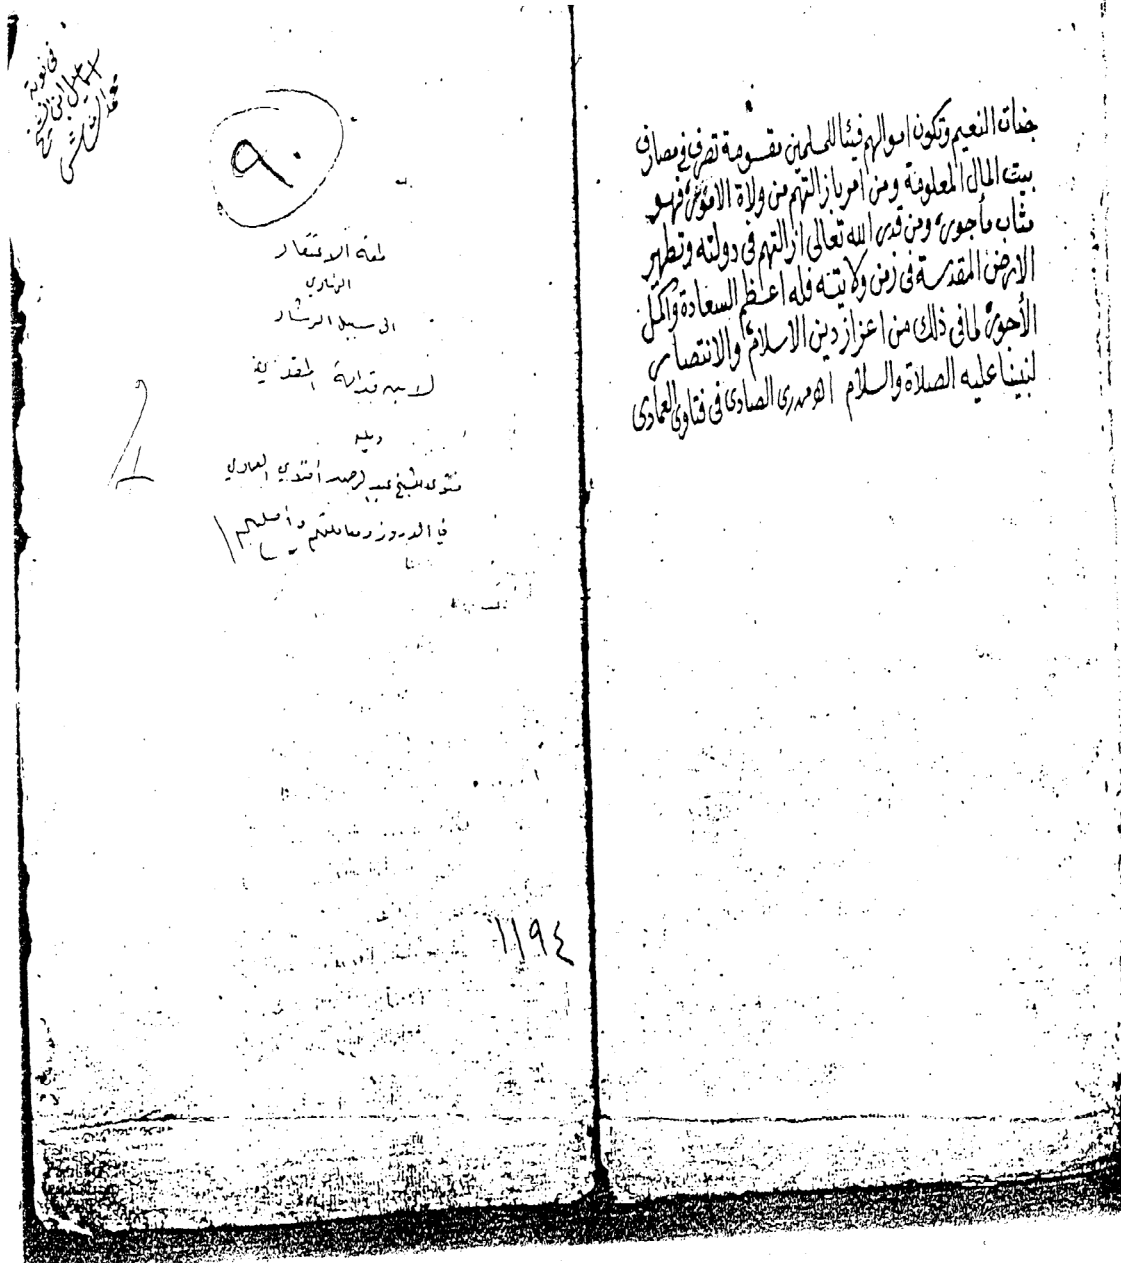 جنات النعيم وتكون اموالهم فيئا للمسلمين مقسومة تصرف في مصارف
بيت المال المعلومة ومن امر بازالتهم من ولاة الامور فهو
مثاب مأجور ومن قدر الله تعالى ازالتهم في دولته وتطهير
الارض المقدسة في زمن ولايته فله اعظم السعادة واكمل
الأجور لما في ذلك من اعزاز دين الاسلام والانتصار
لنبينا عليه الصلاة والسلام اه في فتاوى العمادى
في نوبة
٩٠
لمعة الاعتقاد
الهادي
الى سبيل الرشاد
لابن قدامة المقدسي
ويليه
فتوى للشيخ عبد الرحمن أفندي العمادي
في الدروز ومعاملتهم وأصلهم
١١٩٤